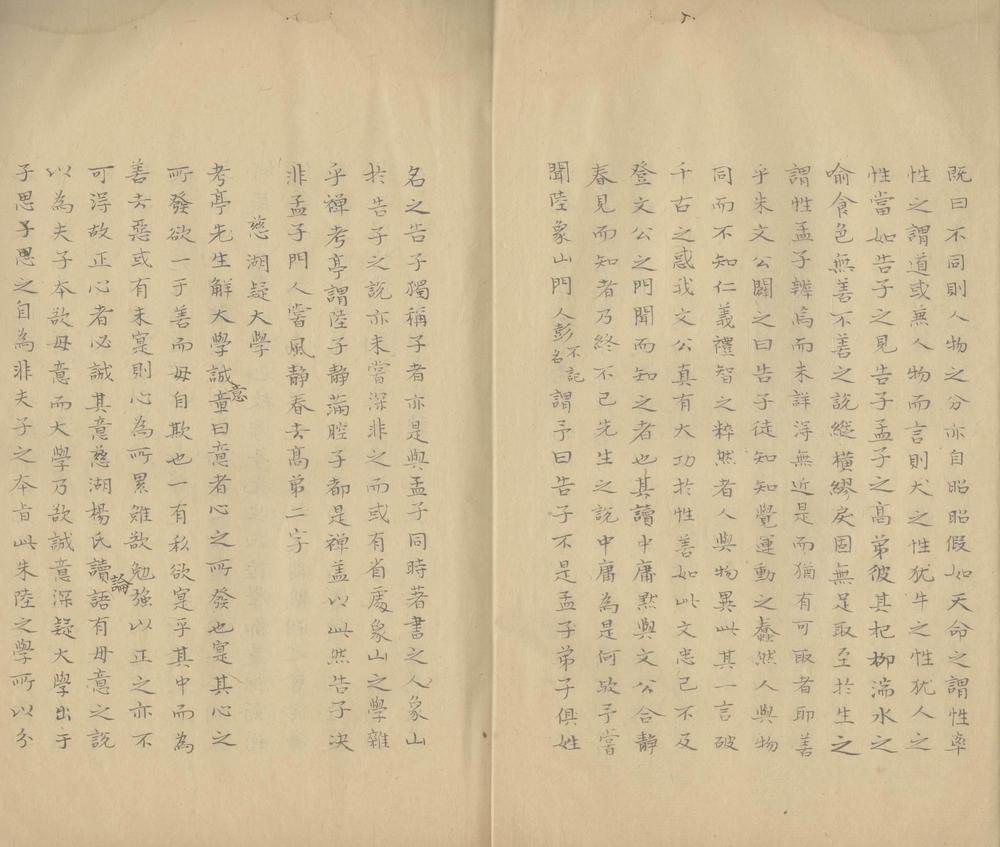 既曰不同則人物之分亦自昭昭假如天命之謂性率
性之謂道或無人物而言則犬之性犹牛之性犹人之
性當如告子之見告子孟子之髙弟彼其杞柳湍水之
喻食色無善不善之說縱橫繆戾固無足取至於生之
謂性孟子辨焉而未詳淂無近是而猶有可取者耶善
乎朱文公闢之曰告子徒知知覺運動之蠢然人與物
同而不知仁義禮智之粹然者人與物異此其一言破
千古之惑我文公真有大功於性善如此文忠己不及
登文公之門聞而知之者也其讀中庸黙與文公合静
春見而知者乃終不己先生之說中庸為是何欤予嘗
聞陸象山門人彭名不記謂予曰告子不是孟子弟子俱姓
名之告子獨稱子者亦是與孟子同時著書之人象山
於告子之說亦未嘗深非之而或有省處象山之學雜
乎禅考亭謂陸子静滿腔子都是禅盖以此然告子决
非孟子門人嘗風静春去髙弟二字
慈湖疑大學
考亭先生解大學誠意章曰意者心之所發也寔其心之
所發欲一于善而毋自欺也一有私欲寔乎其中而為
善去惡或有未寔則心為所累雖欲勉強以正之亦不
可淂故正心者必誠其意慈湖楊氏讀論語有毋意之說
以為夫子本欲毋意而大學乃欲誠意深疑大學出于
子思子思之自為非夫子之本旨此朱陸之學所以分